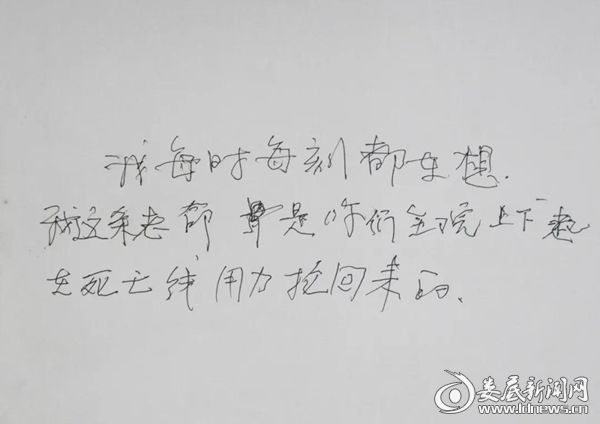 我每时每刻都在想.
我这条老命是你们全院上下
在死亡线用力抢回来的.
娄底新闻网
www.ldnews.cn